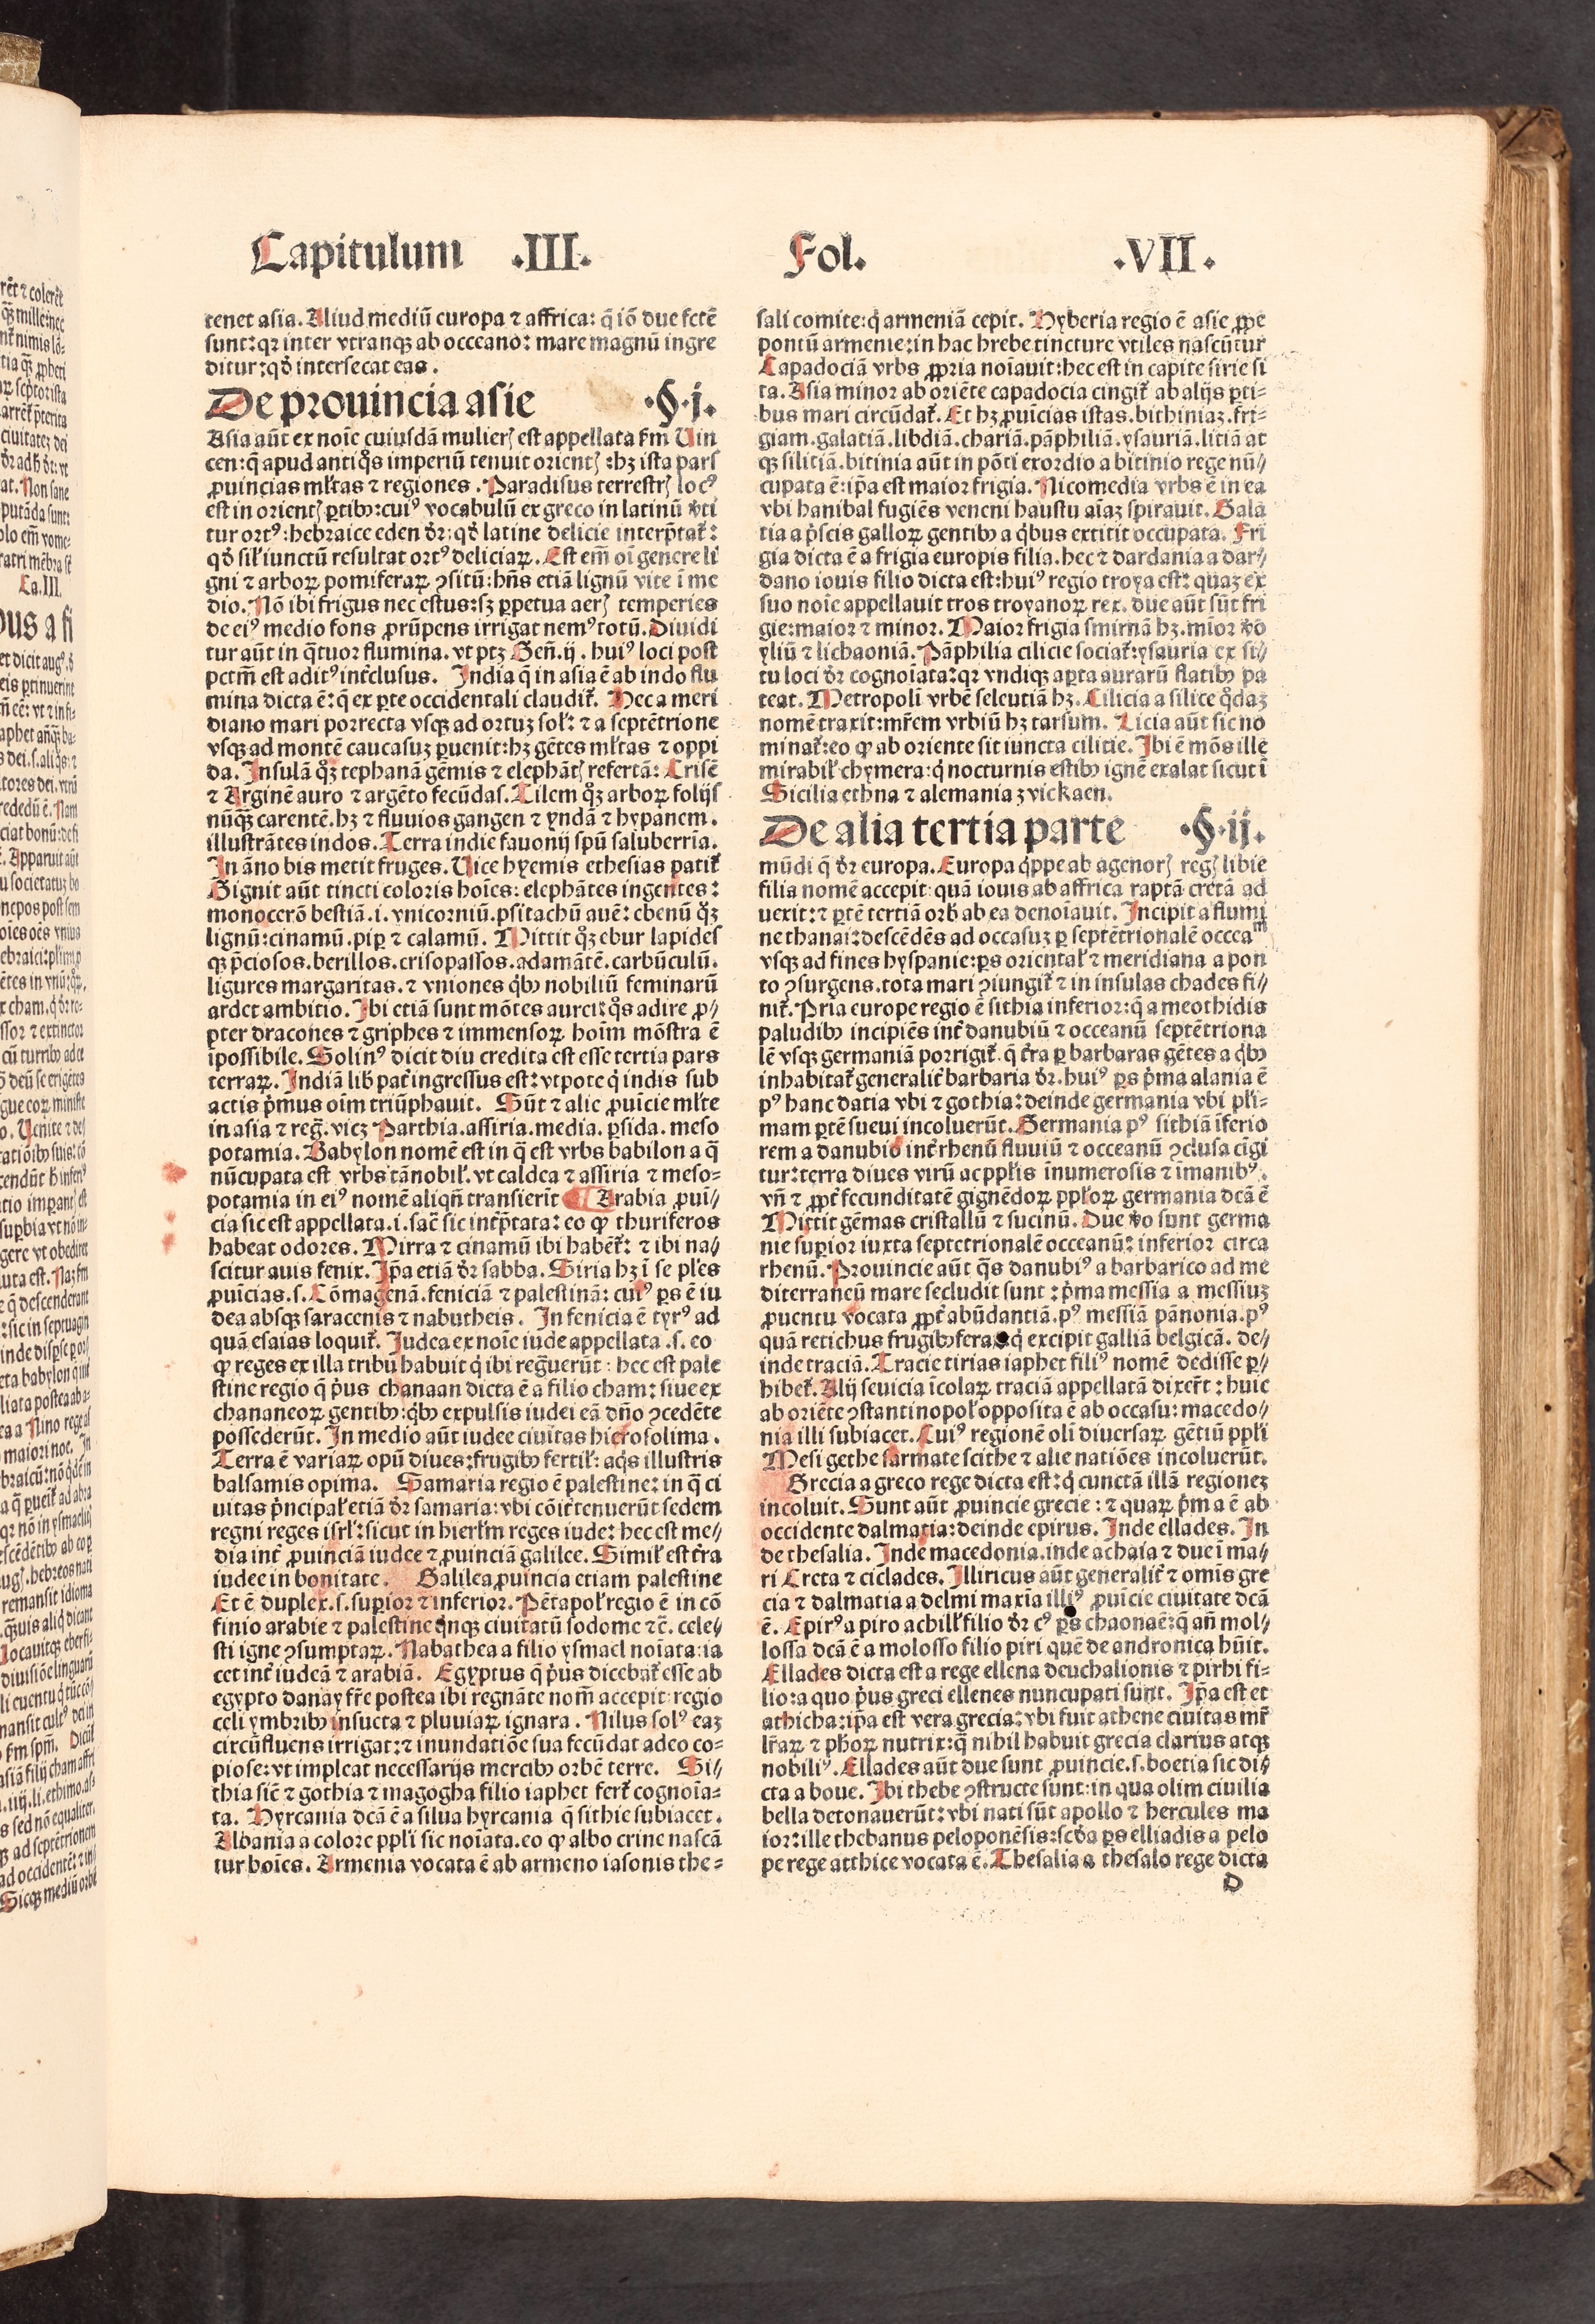 Capitulum .III.
Fol. .VII.
tenet asia. Aliud mediū europa ⁊ affrica: q̄ iō due fctē
sunt: qꝛ inter vtranqꝫ ab occeano: mare magnū ingre
ditur: qđ intersecat eas.
De prouincia asie .§.j.
Asia aūt ex noīe cuiusdā mulierꝭ est appellata ẜm Uin
cen: q̄ apud antiq̊s imperiū tenuit orientꝭ: hꝫ ista pars
ꝓuincias ml̄tas ⁊ regiones. Paradisus terrestrꝭ locꝰ
est in orientꝭ ꝑtibꝫ: cuiꝰ vocabulū ex greco in latinū v̓ti
tur ortꝰ: hebraice eden dr̄: qđ latine delicie interp̄tat᷑:
qđ sil̓ iunctū resultat ortꝰ deliciaꝝ. Est em̄ oī genere li
gni ⁊ arboꝝ pomiferaꝝ ꝯsitū: hn̄s etiā lignū vite ī me
dio. Nō ibi frigus nec estus: sꝫ ꝑpetua aerꝭ temperies
de eiꝰ medio fons ꝓrūpens irrigat nemꝰ totū. Diuidi
tur aūt in q̈tuor flumina. vt ptꝫ Gen̄.ij. huiꝰ loci post
pctm̄ est aditꝰ int̓clusus. India q̄ in asia ē ab indo flu
mina dicta ē: q̄ ex ꝑte occidentali claudit᷑. Hec a meri
diano mari porrecta vsqꝫ ad ortuꝫ sol̓: ⁊ a septētrione
vsqꝫ ad montē caucasuꝫ ꝑuenit: hꝫ gētes ml̄tas ⁊ oppi
da. Insulā qꝫ tephanā gēmis ⁊ elephātꝭ refertā: Crisē
⁊ Arginē auro ⁊ argēto fecūdas. Tilem qꝫ arboꝝ folijs
nūqꝫ carentē. hꝫ ⁊ fluuios gangen ⁊ yndā ⁊ hypanem.
illustrātes indos. Terra indie fauonij spū saluberrīa.
In āno bis metit fruges. Uice hyemis ethesias patit᷑
Gignit aūt tincti coloris hoīes: elephātes ingentes:
monocerō bestiā .i. vnicorniū. psitachū auē: ebenū qꝫ
lignū: cinamū. pip̄ ⁊ calamū. Mittit qꝫ ebur lapides
qꝫ p̄ciosos. berillos. crisopassos. adamātē. carbūculū.
ligures margaritas. ⁊ vniones q̓bꝫ nobiliū feminarū
ardet ambitio. Ibi etiā sunt mōtes aurei: q̊s adire ꝓ⸗
pter dracones ⁊ griphes ⁊ immensoꝝ hoīm mōstra ē
īpossibile. Solinꝰ dicit diu credita est esse tertia pars
terraꝝ. Indiā lib̓ pat̓ ingressus est: vtpote q̓ indis sub
actis p̓mus oīm triūphauit. Sūt ⁊ alie ꝓuīcie ml̄te
in asia ⁊ reḡ. vicꝫ Parthia. assiria. media. ꝑsida. meso
potamia. Babylon nomē est in q̄ est vrbs babilon a q̄
nūcupata est vrbs tā nobil̓. vt caldea ⁊ assiria ⁊ meso⸗
potamia in eiꝰ nomē aliqn̄ transierīt Arabia ꝓuī⸗
cia sic est appellata .i. sac̄ sic int̓p̄tata: eo ꝙ thuriferos
habeat odores. Mirra ⁊ cinamū ibi habēt᷑: ⁊ ibi na⸗
scitur auis fenix. Ip̄a etiā dr̄ sabba. Siria hꝫ ī se pl̄es
ꝓuīcias .s. Cōmagenā. feniciā ⁊ palestinā: cuiꝰ ꝑs ē iu
dea absqꝫ saracenis ⁊ nabutheis. In fenicia ē tyrꝰ ad
quā esaias loquit᷑. Judea ex noīe iude appellata .s. eo
ꝙ reges ex illa tribu habuit q̓ ibi regn̄erūt: hec est pale
stine regio q̄ p̓us chanaan dicta ē a filio cham: siue ex
chananeoꝝ gentibꝫ: q̓bꝫ expulsis iudei eā dn̄o ꝯcedēte
possederūt. In medio aūt iudee ciuitas hierosolima.
Terra ē variaꝝ opū diues: frugibꝫ fertil̓: aq̓s illustris
balsamis opima. Samaria regio ē palestine: in q̄ ci
uitas p̓ncipal̓ etiā dr̄ samaria: vbi cōit̓ tenuerūt sedem
regni reges isrl̓: sicut in hierl̓m reges iude: hec est me⸗
dia int̓ ꝓuinciā iudee ⁊ ꝓuinciā galilee. Simil̓ est t̓ra
iudee in bonitate. Galilea ꝓuincia etiam palestine
Et ē duplex .s. superior ⁊ inferior. Pētapol̓ regio ē in cō
finio arabie ⁊ palestine q̓nqꝫ ciuitatū sodome ⁊c̄. cele⸗
sti igne ꝯsumptaꝝ. Nabathea a filio ysmael noīata: ia
cet int̓ iudeā ⁊ arabiā. Egyptus q̄ p̓us dicebat᷑ esse ab
egypto danay fr̄e postea ibi regnāte nom̄ accepit: regio
celi ymbribꝫ insueta ⁊ pluuiaꝝ ignara. Nilus solꝰ eaꝫ
circūfluens irrigat: ⁊ inundatiōe sua fecūdat adeo co⸗
piose: vt impleat necessarijs mercibꝫ orbē terre. Si⸗
thia siē ⁊ gothia ⁊ magogha filio iaphet fert᷑ cognoīa⸗
ta. Hyrcania dcā ē a silua hyrcania q̄ sithie subiacet.
Albania a colore ppl̓i sic noīata. eo ꝙ albo crine nascā
tur hoīes. Armenia vocata ē ab armeno iasonis the⸗
sali comite: q̓ armeniā cepit. Hyberia regio ē asie ꝓpe
pontū armenie: in hac hrebe tincture vtiles nascūtur
Capadociā vrbs ꝓpria noīauit: hec est in capite sirie si
ta. Asia minor ab oriēte capadocia cingit᷑ ab alijs ꝑti⸗
bus mari circūdat᷑. Et hꝫ ꝓuīcias istas. bithiniaꝫ. fri⸗
giam. galatiā. libdiā. chariā. pāphiliā. ysauriā. litiā at
qꝫ silitiā. bitinia aūt in pōti exordio a bitinio rege nū⸗
cupata ē: ip̄a est maior frigia. Nicomedia vrbs ē in ea
vbi hanibal fugiēs veneni haustu aīaꝫ spirauit. Gala
tia a p̓scis galloꝝ gentibꝫ a q̓bus extitit occupata. Fri
gia dicta ē a frigia europis filia. hec ⁊ dardania a dar⸗
dano iouis filio dicta est: huiꝰ regio troya est: quaꝫ ex
suo noīe appellauit tros troyanoꝝ rex. due aūt sūt fri
gie: maior ⁊ minor. Maior frigia smirnā hꝫ. mīor v̓o
yliū ⁊ lichaoniā. Pāphilia cilicie sociat᷑: ysauria ex si⸗
tu loci dr̄ cognoīata: qꝛ vndiqꝫ aꝑta aurarū flatibꝫ pa
teat. Metropolī vrbē seleutiā hꝫ. Cilicia a silice q̊daꝫ
nomē traxit: mr̄em vrbiū hꝫ tarsum. Licia aūt sic no
minat᷑: eo ꝙ ab oriente sit iuncta cilitie. Ibi ē mōs ille
mirabil̓ chymera: q̓ nocturnis estibꝫ ignē exalat sicut ī
Sicilia ethna ⁊ alemania ꝫvickaen.
De alia tertia parte .§.ij.
mūdi q̄ dr̄ europa. Europa q̓ppe ab agenorꝭ regꝭ libie
filia nomē accepit: quā iouis ab affrica raptā cretā ad
uexit: ⁊ ꝑtē tertiā orb̓ ab ea denoīauit. Incipit a flumi
ne thanai: descēdēs ad occasuꝫ ꝑ septētrionalē occeaᵐ
vsqꝫ ad fines hyspanie: ꝑs oriental̓ ⁊ meridiana a pon
to ꝯsurgens. tota mari ꝯiungit᷑ ⁊ in insulas chades fi⸗
nit᷑. Pria europe regio ē sithia inferior: q̄ a meothidis
paludibꝫ incipiēs int̓ danubiū ⁊ occeanū septētriona
lē vsqꝫ germaniā porrigit᷑. q̄ t̓ra ꝑ barbaras gētes a q̓bꝫ
inhabitat᷑ generalit̓ barbaria dr̄. huiꝰ ꝑs p̓ma alania ē
pꝰ hanc datia vbi ⁊ gothia: deinde germania vbi pl̓i⸗
mam ꝑtē sueui incoluerūt. Germania pꝰ sithiā īferio
rem a danubio int̓ rhenū fluuiū ⁊ occeanū ꝯclusa cīgi
tur: terra diues virū ac ppl̓is īnumerosis ⁊ īmanibꝰ.
vn̄ ⁊ ꝓpt̓ fecunditatē gignēdoꝝ ppl̓oꝝ germania dcā ē
Mittit gēmas cristallū ⁊ sucinū. Due v̓o sunt germa
nie superior iuxta septētrionalē occeanū: inferior circa
rhenū. Prouincie aūt q̄s danubiꝰ a barbarico ad me
diterraneū mare secludit sunt: p̓ma messia a messiuꝫ
ꝓuentu vocata ꝓpt̓ abūdantiā. pꝰ messiā pānonia. pꝰ
quā retichus frugibꝫ fera q̓ excipit galliā belgicā. de⸗
inde traciā. Tracie tirias iaphet filiꝰ nomē dedisse ꝑ⸗
hibet᷑. Alij seuicia īcolaꝝ traciā appellatā dixer̄t: huic
ab oriēte ꝯstantinopol̓ opposita ē ab occasu: macedo⸗
nia illi subiacet. Cuiꝰ regionē olī diuersaꝝ gētiū ppl̓i
Mesi gethe sarmate scithe ⁊ alie natiōes incoluerūt.
Grecia a greco rege dicta est: q̓ cunctā illā regioneꝫ
incoluit. Sunt aūt ꝓuincie grecie: ⁊ quaꝝ p̓ma ē ab
occidente dalmatia: deinde epirus. Inde ellades. In
de thesalia. Inde macedonia. inde achaia ⁊ due ī ma⸗
ri Creta ⁊ ciclades. Illiricus aūt generalit̓ ⁊ omīs gre
cia ⁊ dalmatia a delmi maxīa illiꝰ ꝓuīcie ciuitate dcā
ē. Epirꝰ a piro achill̓ filio dr̄ cꝰ ꝑs chaonaē: q̄ an̄ mol⸗
lossa dcā ē a molosso filio piri quē de andronica hn̄it.
Ellades dicta est a rege ellena deuchalionis ⁊ pirhi fi⸗
lio: a quo p̓us greci ellenes nuncupati sunt. Ip̄a est et
athicha: ip̄a est vera grecia: vbi fuit athene ciuitas mr̄
lr̄aꝝ ⁊ ph̓oꝝ nutrix: q̄ nihil habuit grecia clarius atqꝫ
nobiliꝰ. Ellades aūt due sunt ꝓuincie .s. boetia sic di⸗
cta a boue. Ibi thebe ꝯstructe sunt: in qua olim ciuilia
bella detonauerūt: vbi nati sūt apollo ⁊ hercules ma
ior: ille thebanus peloponēsis: scđa ꝑs elliadis a pelo
pe rege atthice vocata ē. Thesalia a thesalo rege dicta
D